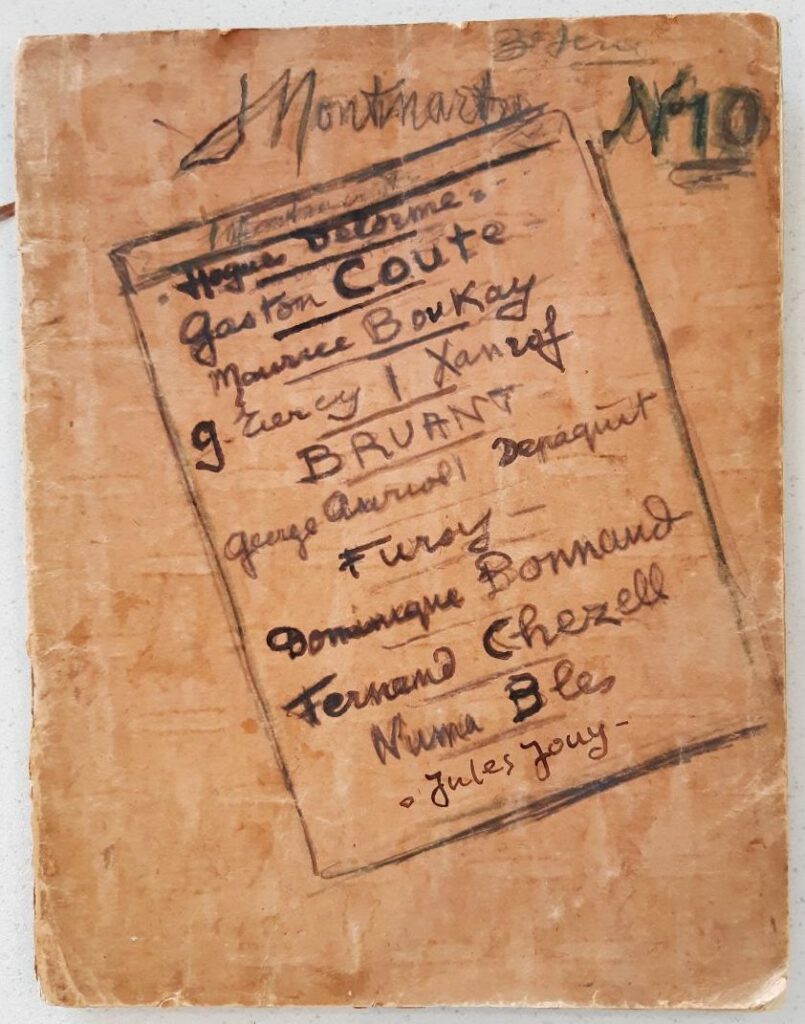 3e Serie
Montmartre
No 10
Hugues Delorme
Gaston Couté
Maurice BouKay
G. Tiercy | Xanrof
BRUANT
George Auriol | Depaquit
Fursy
Dominique Bonnaud
Fernand Chezell
Numa Bles
Jules Jouy